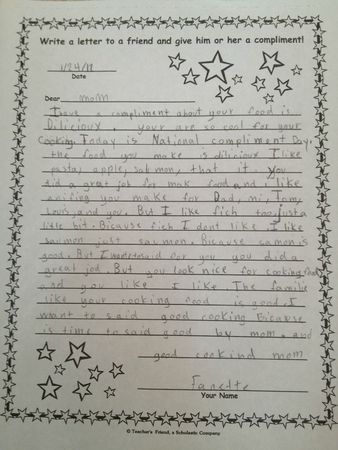 Write a letter to a friend and give him or her a compliment!
1/24/18
Date
Dear mom
I have a compliment about your food is
Dilicioux, your are so cool for your
Cooking. Today is National compliment Day.
the food you make is dilicious I like
pasta, apple, salmon, that it. you
did a grat job for mak food and i like
you make for Dad, mi, Tom,
Louis, and you. But I like fich too, just a
little bit. Bicause fich I dont like I like
saumon just saumon. Bicause samon is
good. But I want to said for you you did a
great job. But you look nice for cooking food
and you like I like. The familie
like your cooking food is good. I
want to said good cooking Bicause
is time to said good by mom. and
good cookind mom
Fanette
Your Name
© Teacher's Friend, a Scholastic Company